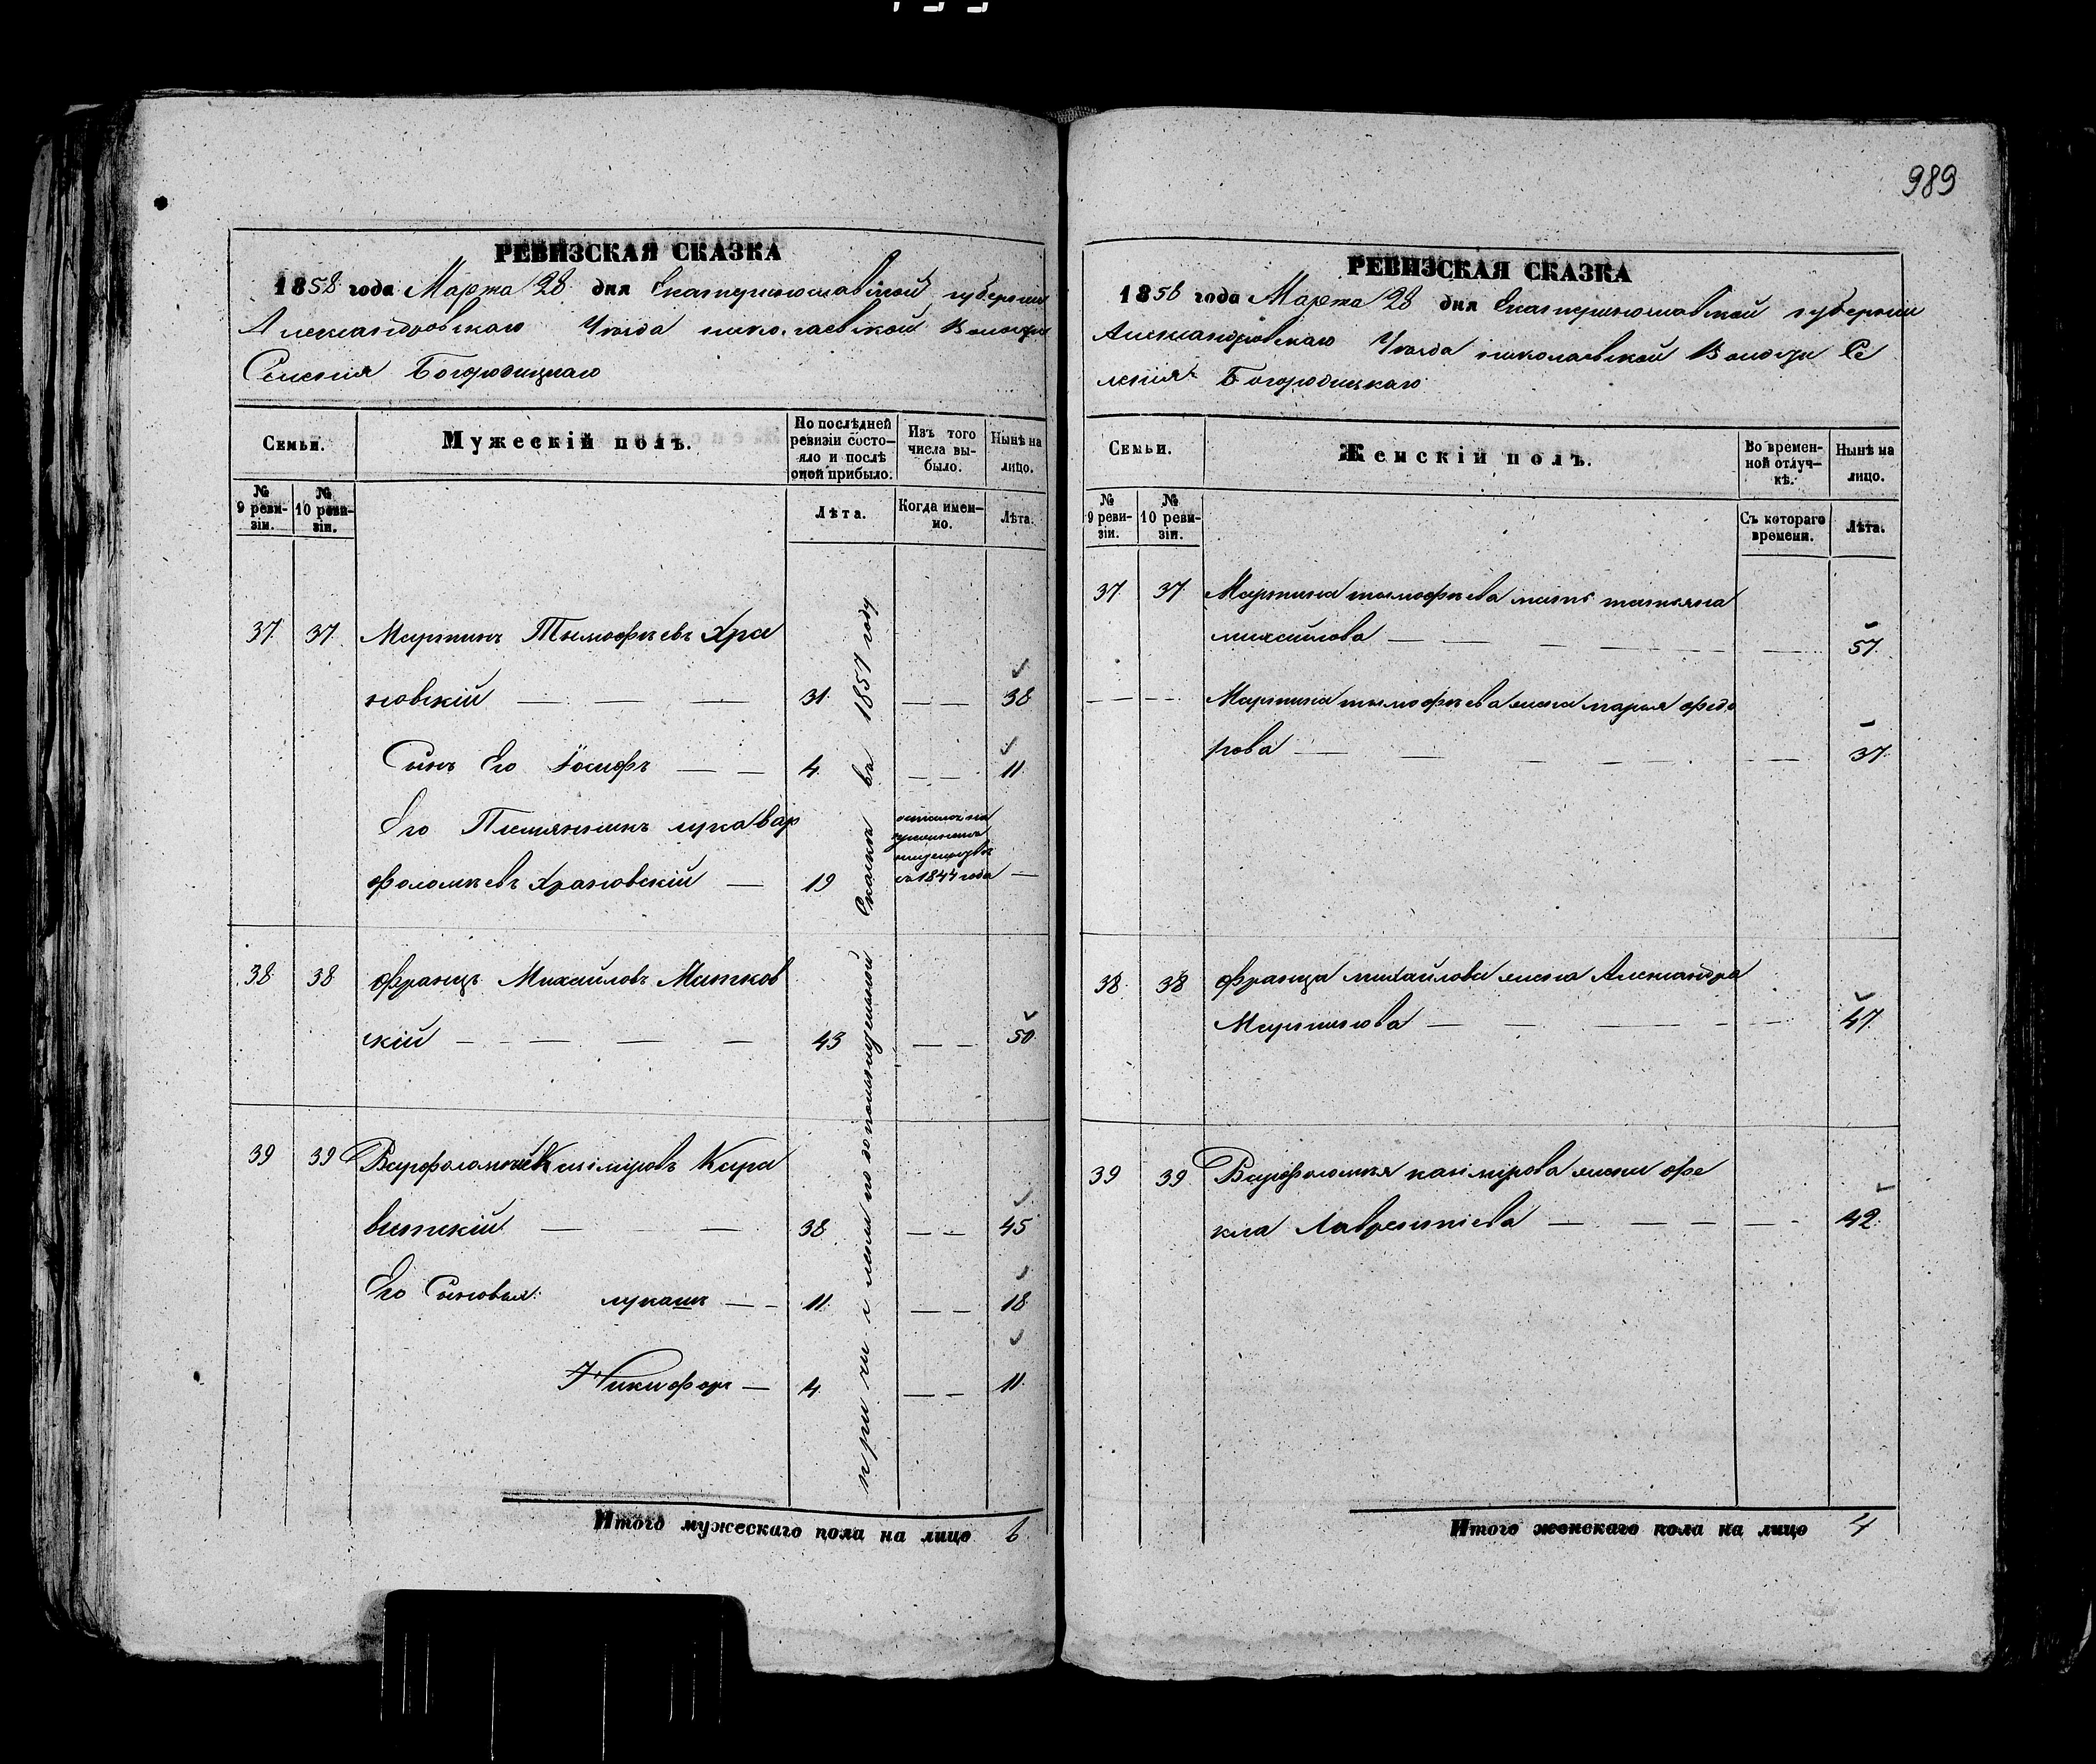 РЕВИЗСКАЯ СКАЗКА
1858 года Марта 28 дня Екатеринославской губернии
Александровскаго Уезда николаевской Волости
Селения Богородицкаго
Семьи.
Мужескій полъ.
По послѣдней ревизіи состо-
яло и послѣ
оной прибыло.
Изъ того
числа вы-
было.
Нынѣ на
лицо.
№
9 реви-
зіи.
№
10 реви-
зіи.
Лѣта.
Когда имен-
но.
Лѣта.
37 37 Мартинъ Тымофѣевъ Хра
новскій — — — 31 — — 38
Сынъ Его Іосифъ — — 4 — — 11
Его Племянникъ лука Вар
фоломѣевъ Храновскій — 19 съ 1844 года —
38 38 францъ Михайловъ Митков
скій — — — — 43 — — 50
39 39 Варфоломей Казіміровъ Кара
витскій — — 38 — — 45
Его Сыновья: лукашъ — — 11 — — 18
Никифоръ — 4 — — 11
причислен по дополнительной Сказкѣ въ 1857 году
Итого мужескаго пола на лицо 6
989
РЕВИЗСКАЯ СКАЗКА
1858 года Марта 28 дня Екатеринославской губернии
Александровскаго Уезда николаевской Волости Се
ления Богородицкаго
Семьи.
Женскій полъ.
Во времен-
ной отлуч-
кѣ.
Нынѣ на
лицо.
№
9 реви-
зіи.
№
10 реви-
зіи.
Съ котораго
времени.
Лѣта.
37 37 Мартина тымофѣева мать татьяна
михайлова — — — — — 57
— — Мартина тымофѣева жена марья федо
рова — — — — — 37
38 38 франца михайлова жена Александра
Мартинова — — — — — 47
39 39 Варфоломея казімірова жена фе
кла Лаврентіева — — — — — 42
Итого женскаго пола на лицо 4